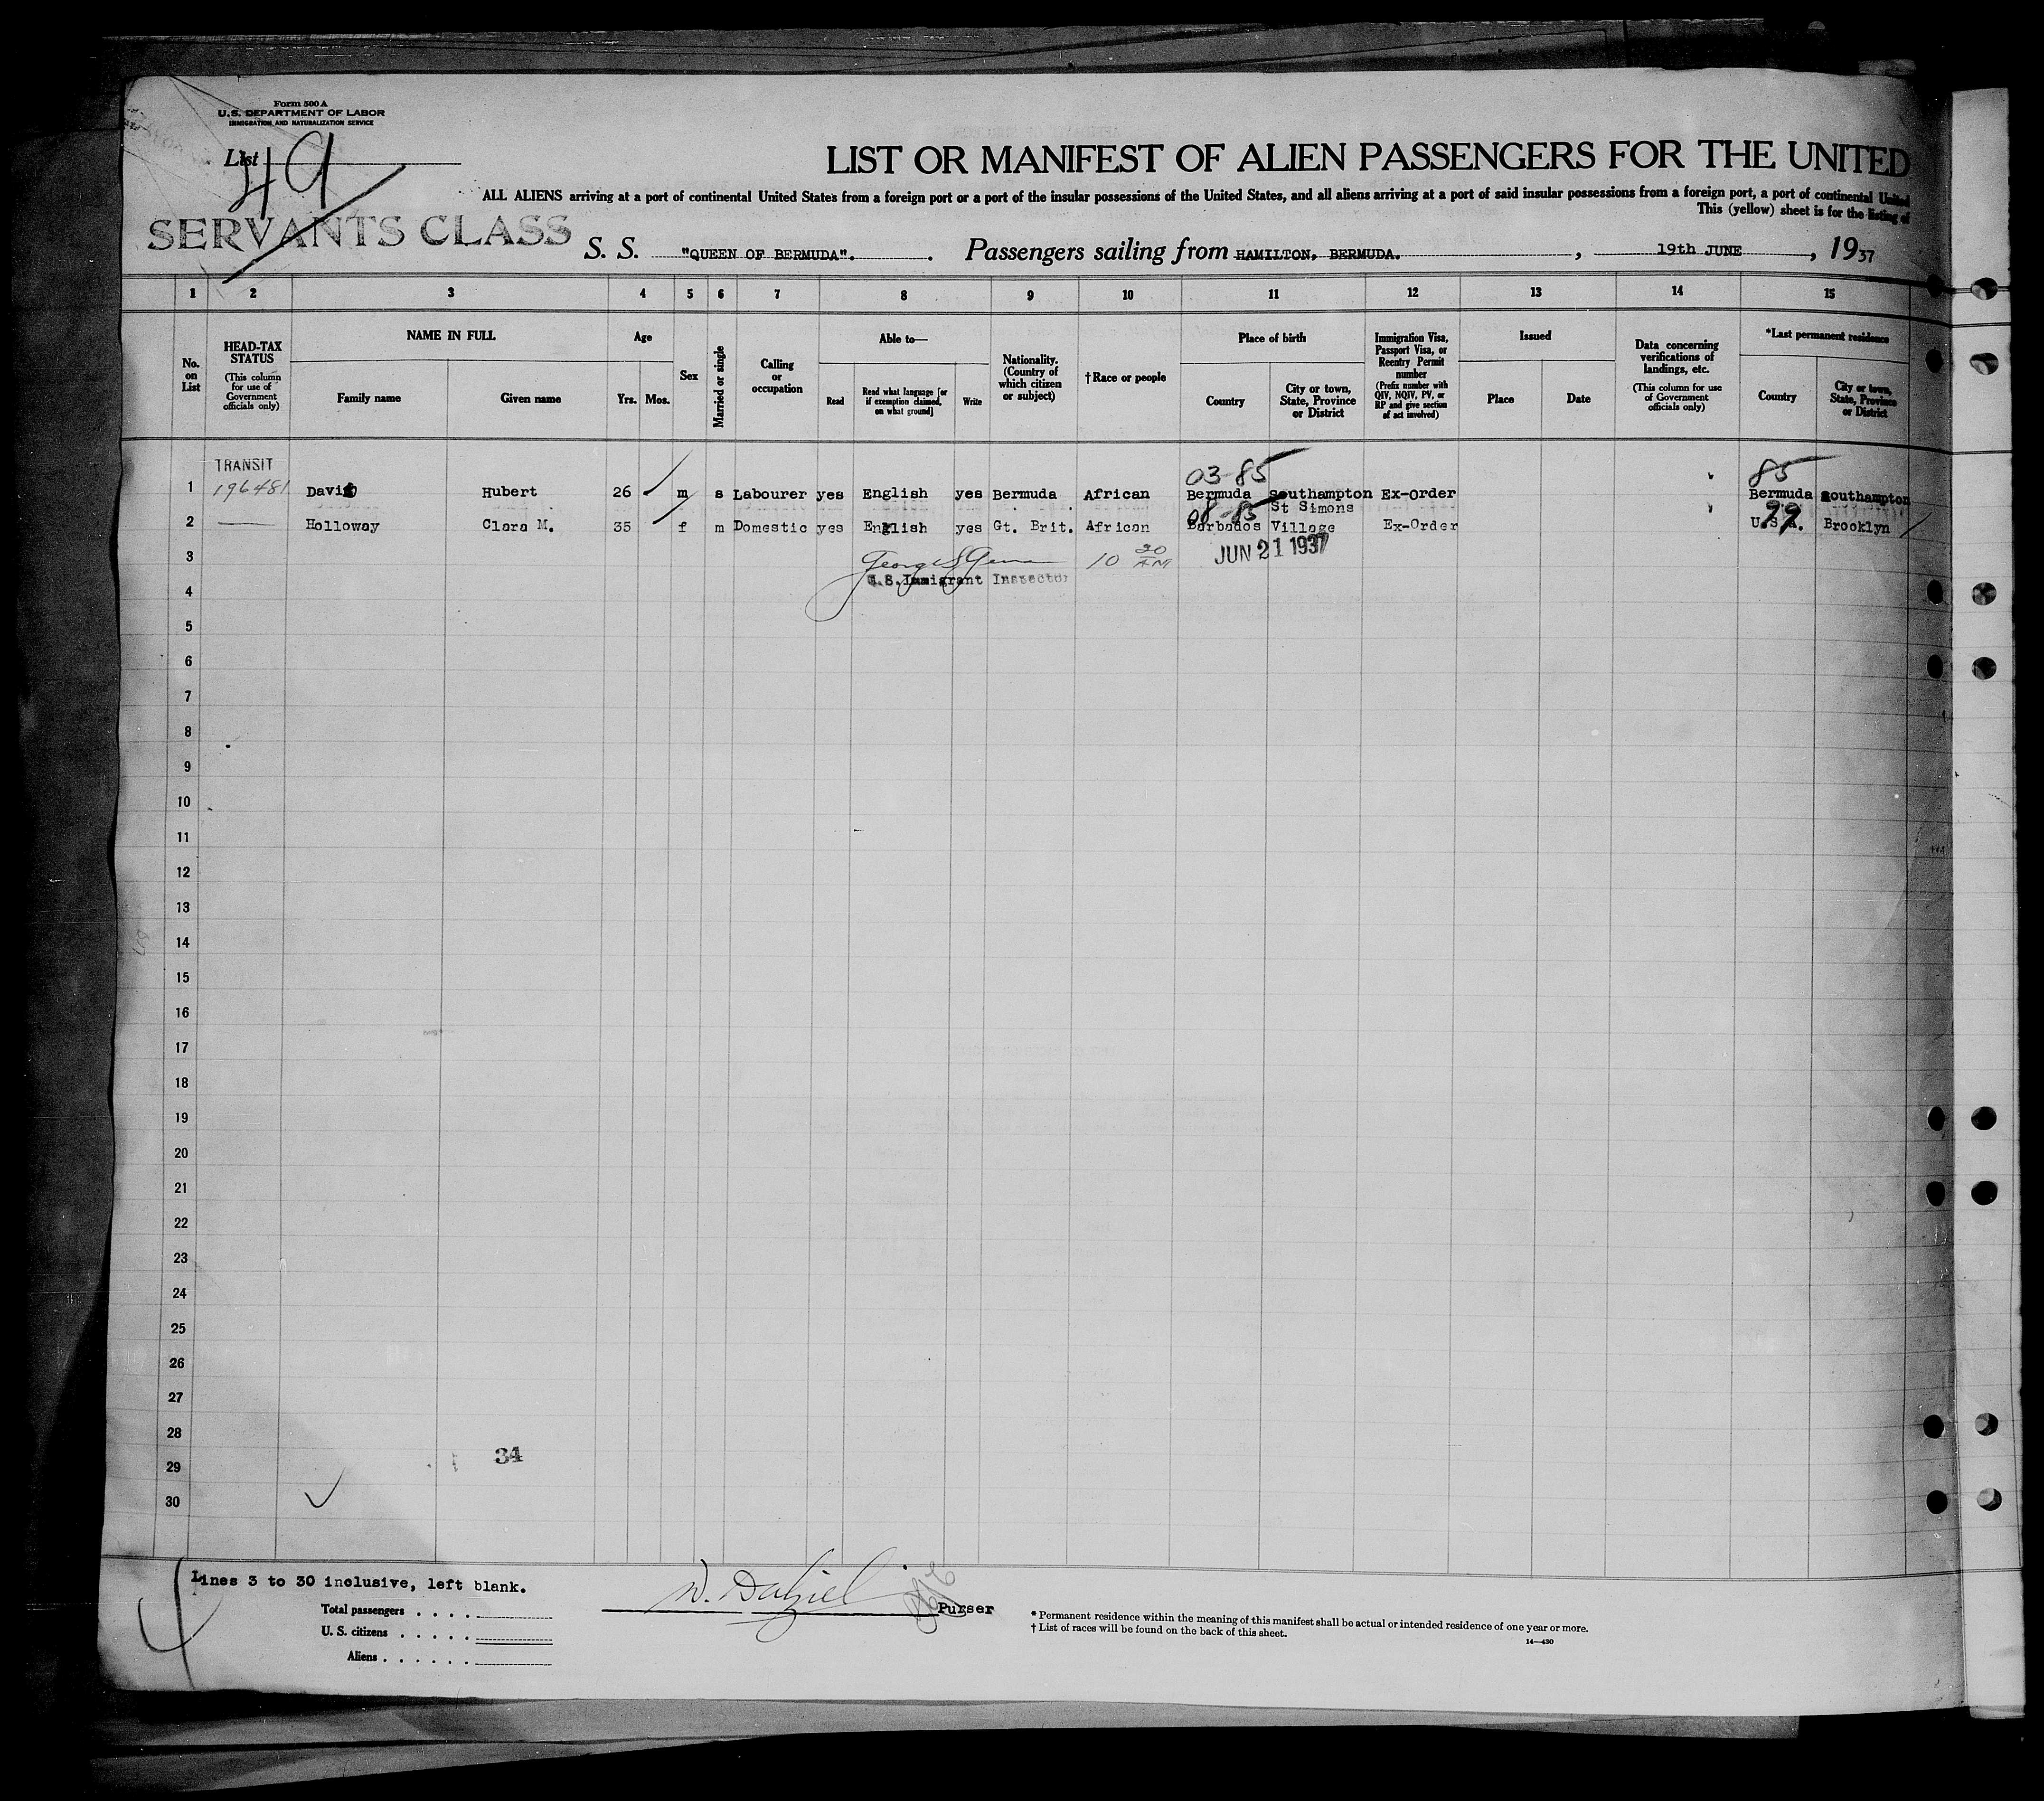 Form 500 A
U.S. DEPARTMENT OF LABOR
IMMIGRATION AND NATURALIZATION SERVICE
List 49
LIST OR MANIFEST OF ALIEN PASSENGERS FOR THE UNITED
ALL ALIENS arriving at a port of continental United States from a foreign port or a port of the insular possessions of the United States, and all aliens arriving at a port of said insular possessions from a foreign port, a port of continental United
This (yellow) sheet is for the listing of
SERVANTS CLASS
S. S. "QUEEN OF BERMUDA". Passengers sailing from HAMILTON, BERMUDA. , 19th JUNE , 1937
1 2 3 4 5 6 7 8 9 10 11 12 13 14 15
No. on List
HEAD-TAX STATUS (This column for use of Government officials only)
NAME IN FULL
Family name Given name
Age
Yrs. Mos.
Sex
Married or single
Calling or occupation
Able to—
Read Read what language [or if exemption claimed, on what ground] Write
Nationality. (Country of which citizen or subject)
†Race or people
Place of birth
Country City or town, State, Province or District
Immigration Visa, Passport Visa, or Reentry Permit number (Prefix number with QIV, NQIV, PV, or RP and give section of act involved)
Issued
Place Date
Data concerning verifications of landings, etc. (This column for use of Government officials only)
*Last permanent residence
Country City or town, State, Province or District
TRANSIT 03-85 85
1 196481 David Hubert 26 m s Labourer yes English yes Bermuda African Bermuda Southampton Ex-Order Bermuda Southampton
08-85 St Simons 99
2 Holloway Clara M. 35 f m Domestic yes English yes Gt. Brit. African Barbados Village Ex-Order U.S.A. Brooklyn
3 10 20 AM JUN 21 1937
U.S. Immigrant Inspector
4
5
6
7
8
9
10
11
12
13
14
15
16
17
18
19
20
21
22
23
24
25
26
27
28
34
29
30
Lines 3 to 30 inclusive, left blank.
Total passengers . . . .
U. S. citizens . . . . .
Aliens . . . . . .
W. Dalziel Purser
* Permanent residence within the meaning of this manifest shall be actual or intended residence of one year or more.
† List of races will be found on the back of this sheet.
14—430